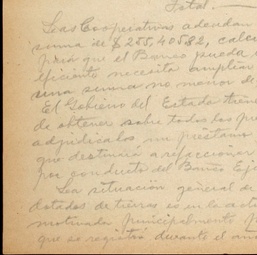 Total.
Las Cooperativas adeudan
suma de $255,405.82, calcu
para que el Banco pueda
eficiente necesita ampliar
una suma no menor de
El Gobierno del Estado tiene
de obtener sobre todos los
adjudicados un préstamo
que destinaría a refaccionar
por conducto del Banco Eji
La situación general de
dotados de tierras es en la actu
motivada principalmente p
que se registró durante el